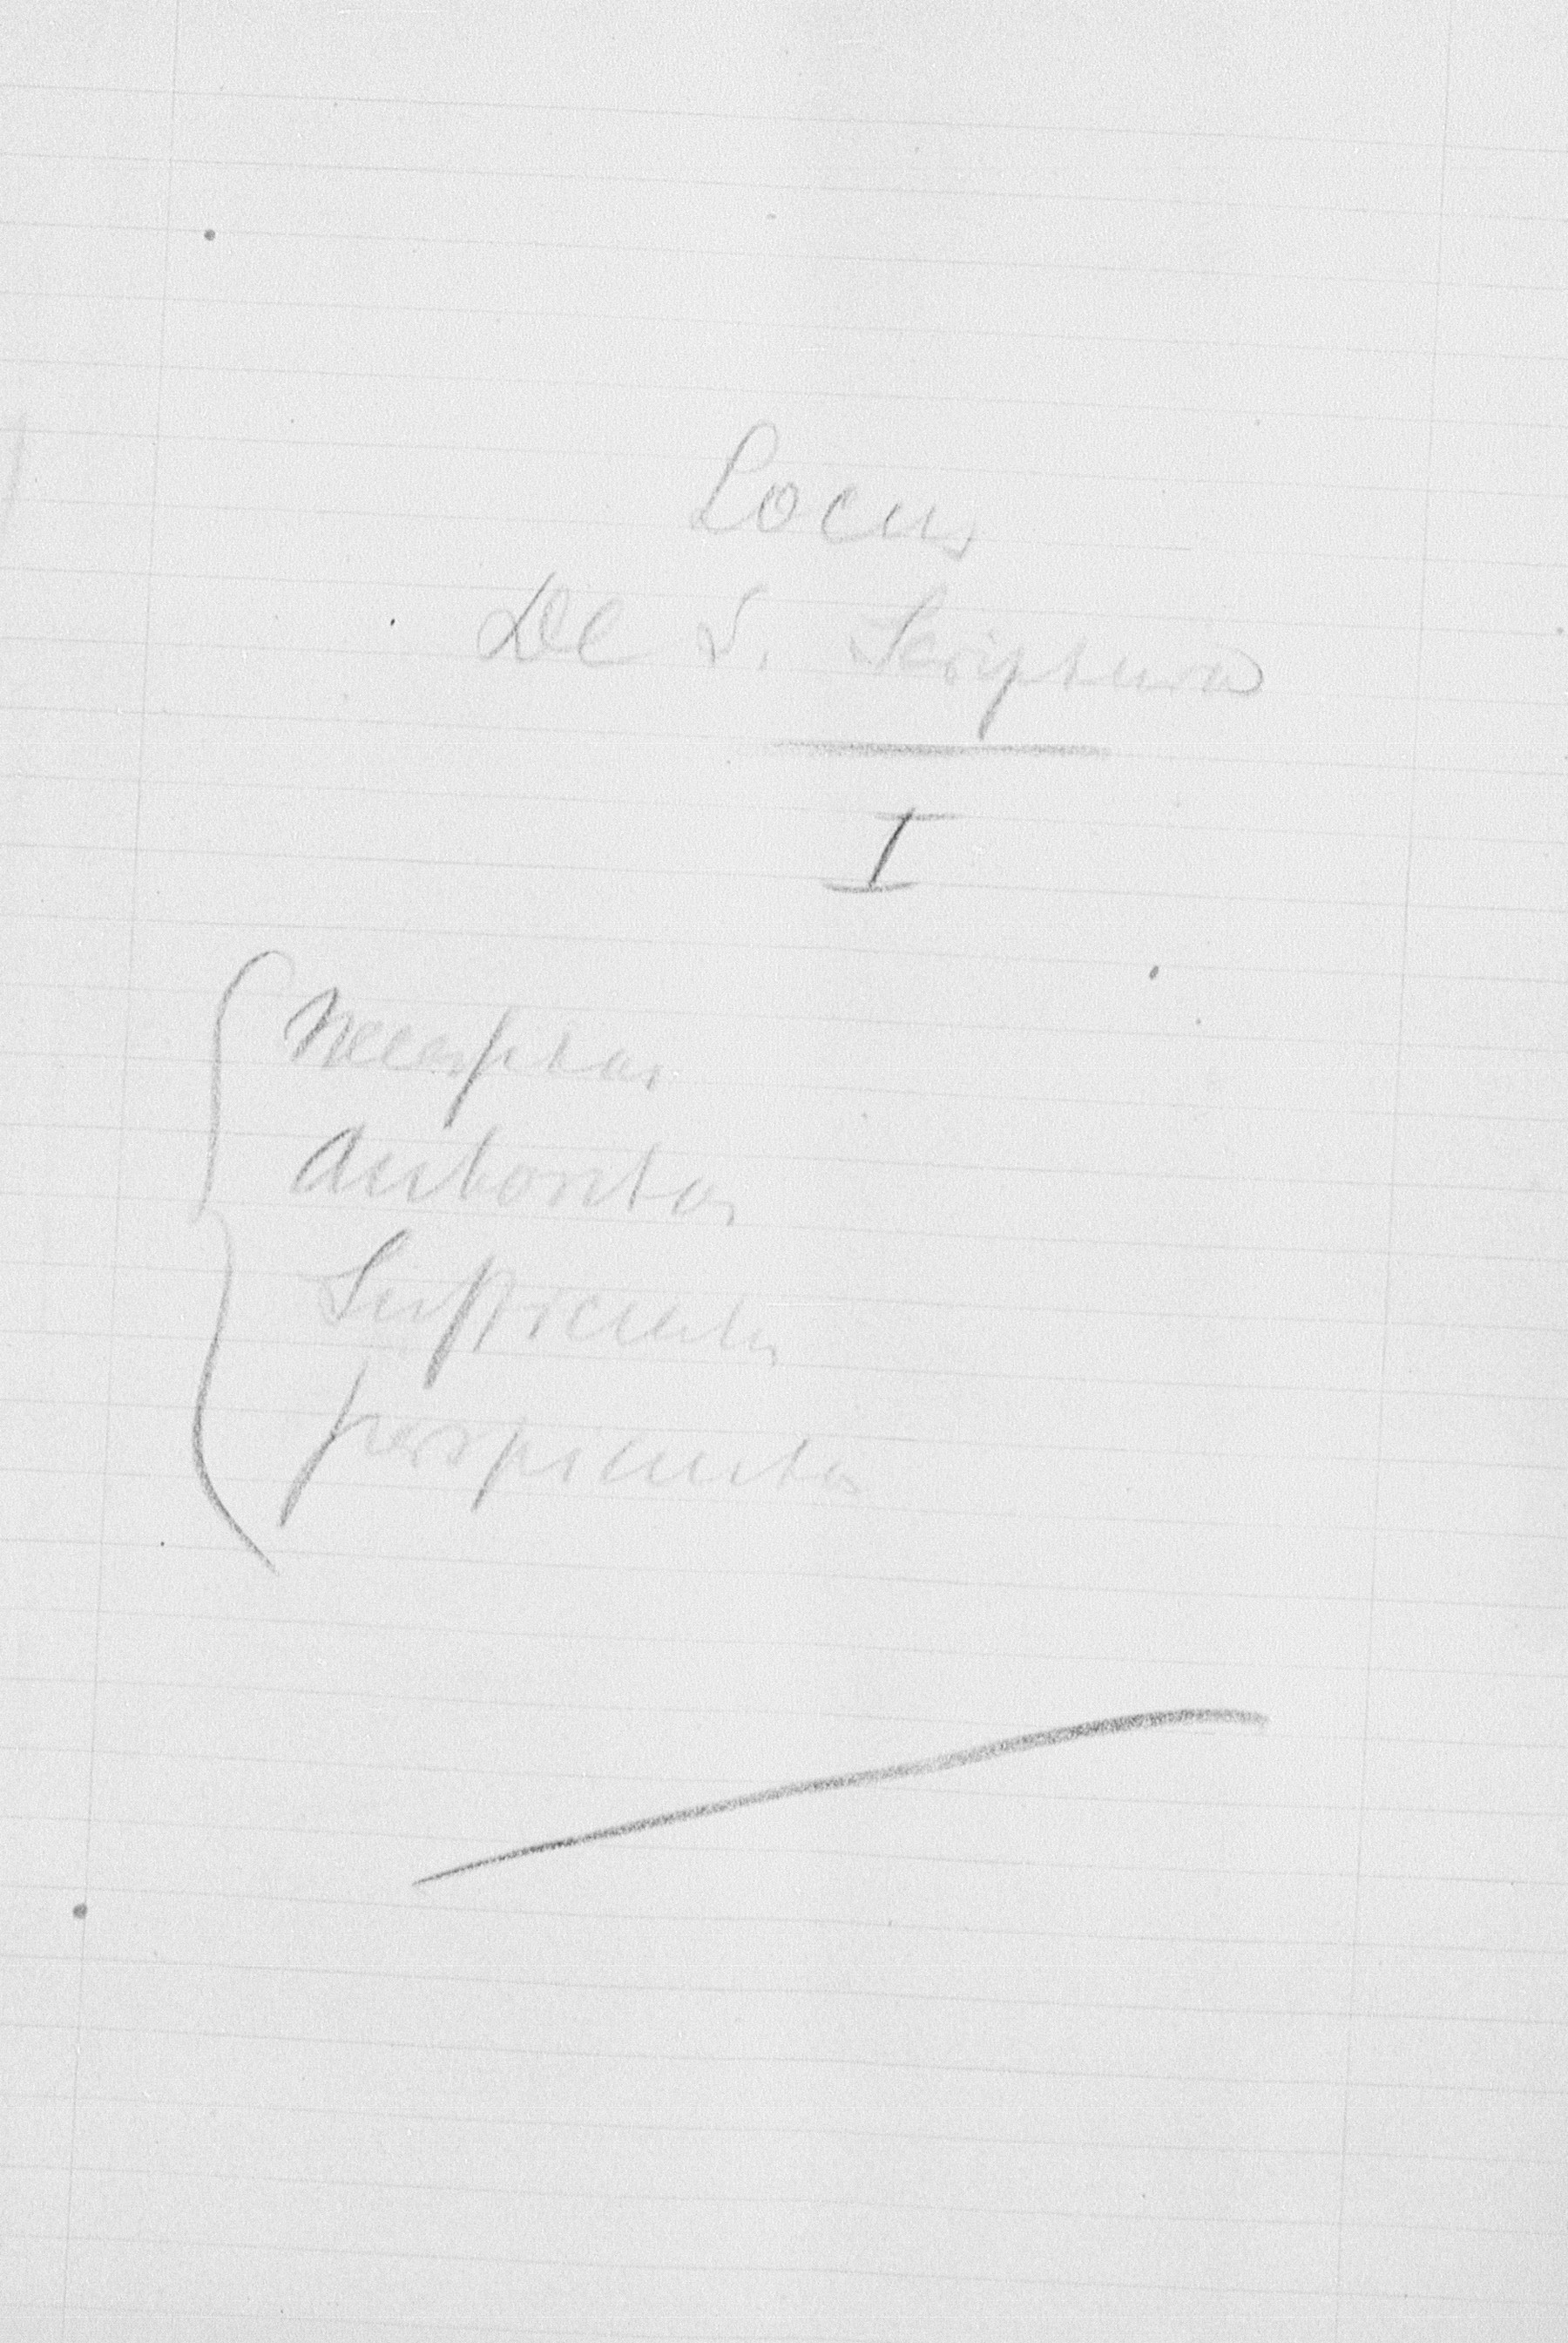 Locus
De S. Scriptura
I
Necessitas
Autoritas
Sufficientia
perspicuitas